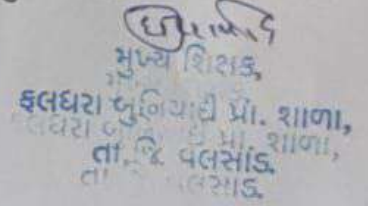 મુખ્ય શિક્ષક,
ફલધરા બુનિયાદી પ્રા. શાળા,
તા.જિ. વલસાડ.